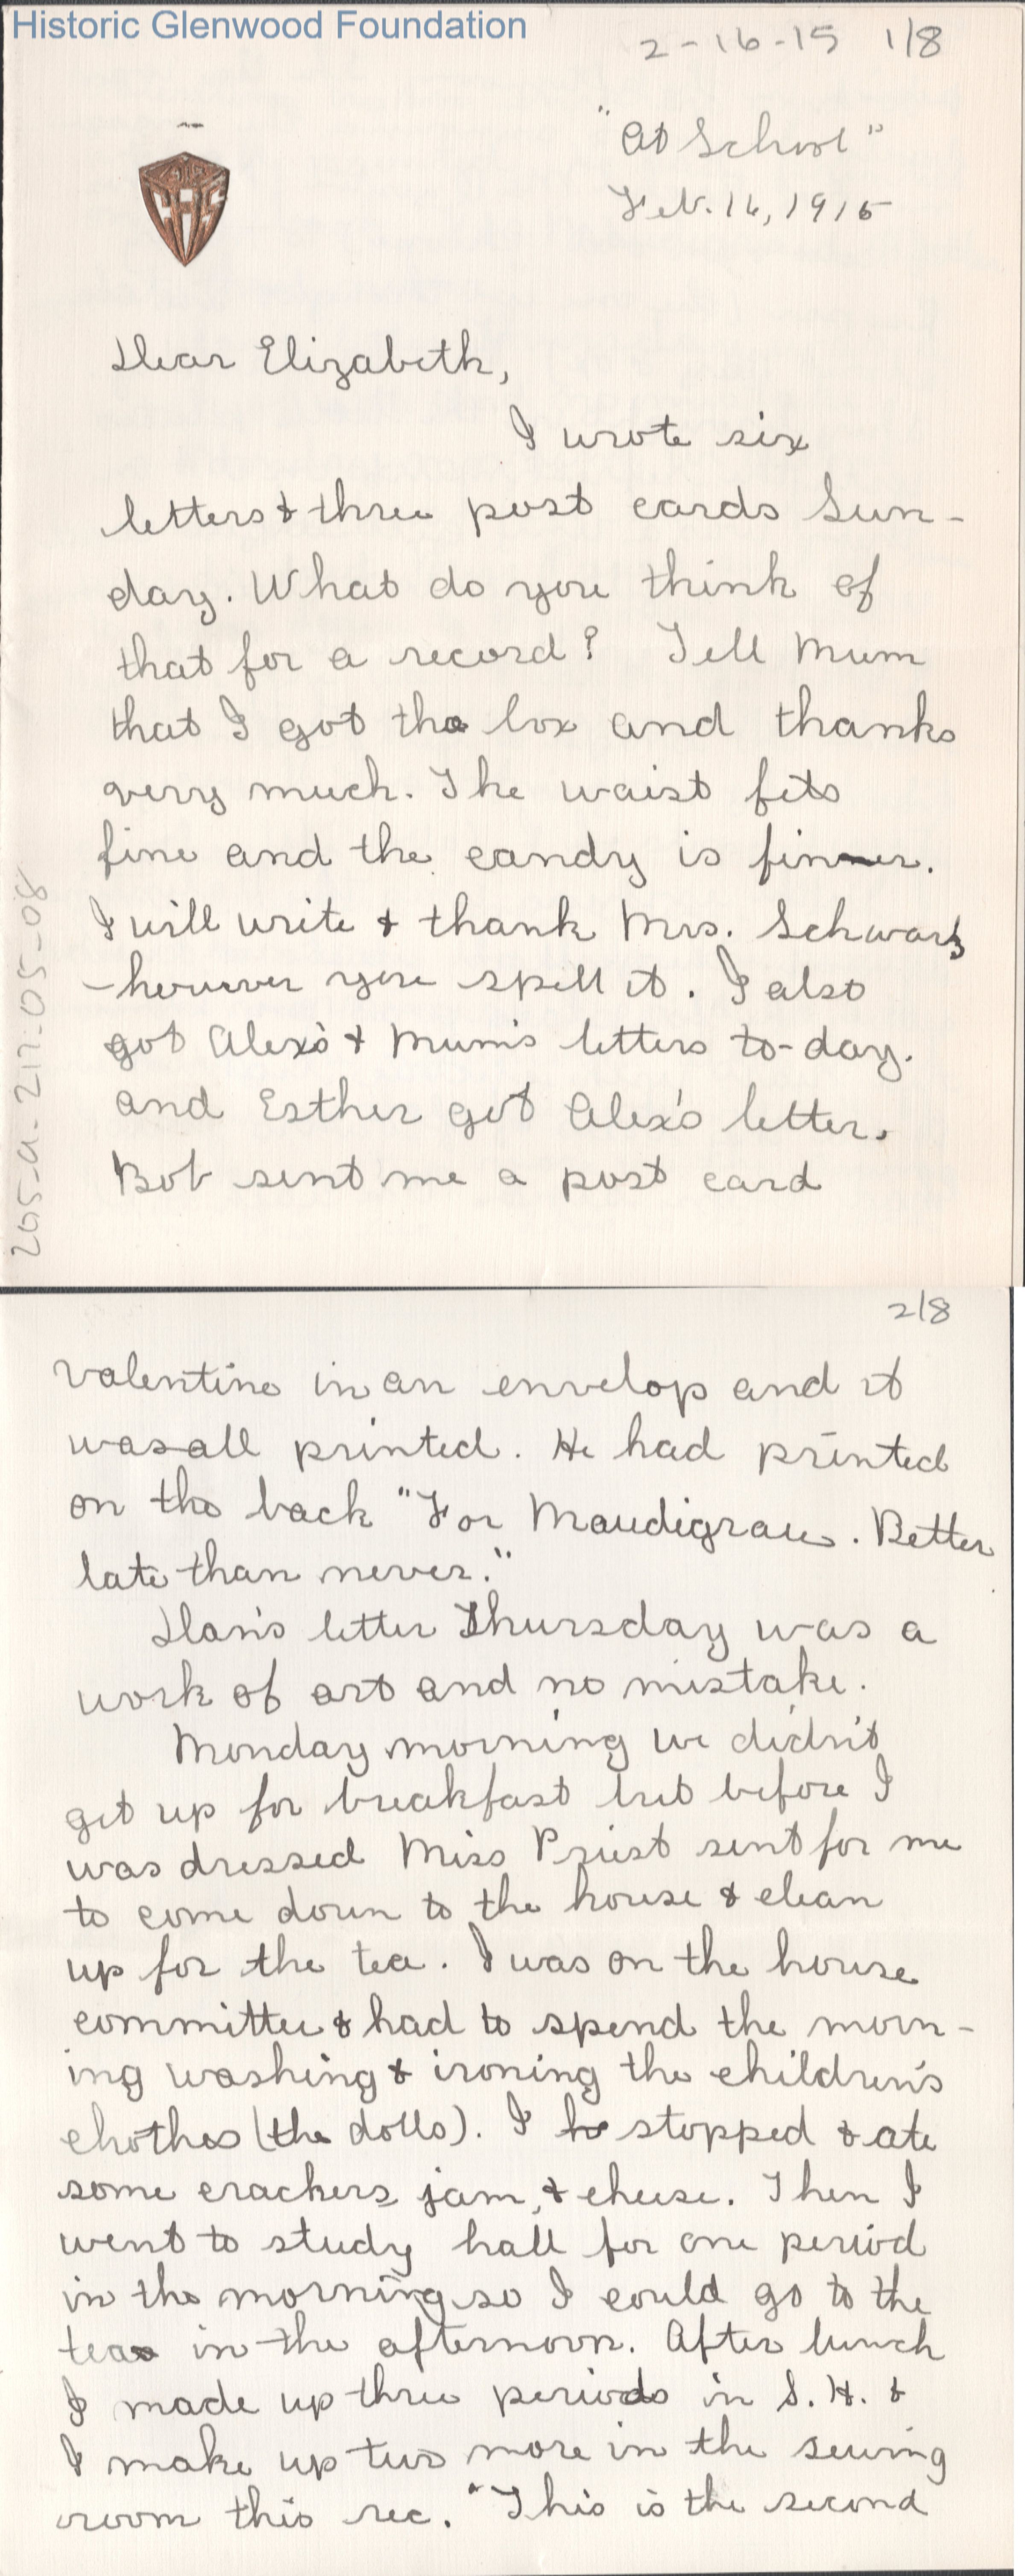 Historic Glenwood Foundation
2-16-15 1/8
"At School"
Feb. 16, 1915
Dear Elizabeth,
I wrote six
letters & three post cards Sun-
day. What do you think of
that for a record? Tell Mum
that I got the box and thanks
very much. The waist fits
fine and the candy is finer.
I will write & thank Mrs. Schwarz
- however you spell it. I also
got Alex's & Mum's letters to-day.
and Esther got Alex's letter.
Bob sent me a post card
205-a-217:05-08
2/8
valentine in an envelop and it
was all printed. He had printed
on the back "For Maudigrau. Better
late than never."
Dan's letter Thursday was a
work of art and no mistake.
Monday morning we didn't
get up for breakfast but before I
was dressed Miss Priest sent for me
to come down to the house & clean
up for the tea. I was on the house
committee & had to spend the morn-
ing washing & ironing the children's
chothes (the dolls). I stopped & ate
some crackers, jam, & cheese. Then I
went to study hall for one period
in the morning so I could go to the
tea in the afternoon. After lunch
I made up three periods in S.H. &
I make up two more in the sewing
room this rec. "This is the second